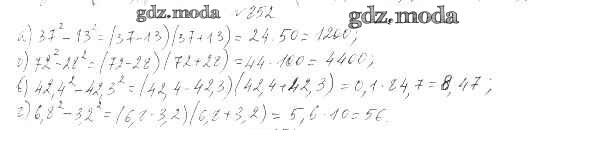 gdz.moda √852 gdz.moda
а) 37² - 13² = (37-13)(37+13) = 24 · 50 = 1200;
б) 72² - 28² = (72-28)(72+28) = 44 · 100 = 4400;
в) 42,4² - 42,3² = (42,4 - 42,3)(42,4 + 42,3) = 0,1 · 84,7 = 8,47;
г) 6,8² - 3,2² = (6,8 - 3,2)(6,8 + 3,2) = 5,6 · 10 = 56.